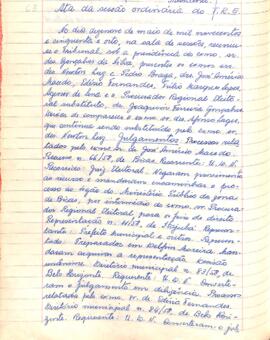 Ata da sessão ordinária do T.R.E.
Aos dezenove de maio de mil novecentos
e cinquenta e oito, na sala de sessões, reuniu-
se o Tribunal, sob a presidência do exmo. sr.
des. Gonçalves da Silva, presentes os exmos. srs.
des. Pedro Braga, drs. José Américo
Macedo, Edésio Fernandes,
e o Procurador Regional Eleito-
ral substituto, dr. Joaquim Ferreira Gonçalves.
Deixou de comparecer o exmo. sr. des. Afonso Lages,
que continua sendo substituído pelo exmo. sr.
des. Julgamentos. Processos rela-
tados pelo exmo. sr. dr. José Américo Macedo.
Recurso n. 66/58, de Bicas. Recorrente:
Recorrido: Juiz Eleitoral. Negaram provimento
ao recurso e mandaram encaminhar o pro-
cesso ao órgão do Ministério Público da comarca
de Bicas, por intermédio do exmo. sr. Procura-
dor Regional Eleitoral, para os fins de direito.
Representação n. 41/58, de Itajubá. Represen-
tante: Prefeito municipal e outros. Represen-
tado: Preparador em Delfim Moreira. Man-
daram arquivar a representação. Decisão
unânime. Diretório municipal n. 83/58, de
Belo Horizonte. Requerente: Converte-
ram o julgamento em diligência. Processos
relatados pelo exmo. sr. dr. Edésio Fernandes.
Diretório municipal n. 84/58, de Belo Hori-
zonte. Requerente: Converteram o jul-